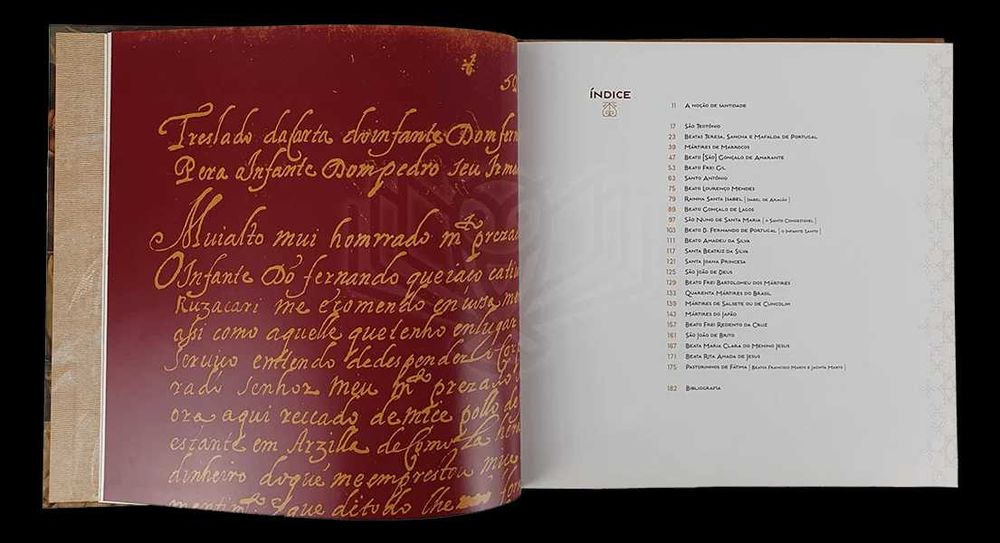 50
Treslado da Carta do infante Dom fern
Pera o Infante Dom pedro seu Irma
Mui alto mui homrrado m.to prezad
O Infante Dõ fernando que jaço cativ
me ecomendo en vosa me
asi como aquelle que tenho en lugar
servico entendo de despender o Cor
rado senhor meu m.to prezado
ora aqui reccado de mice pollo de
estante em Arzilla de Como la
dinheiro do que me emprestou mice
que dito do lhe
ÍNDICE
11 A noção de santidade
17 São Teotónio
23 Beatas Teresa, Sancha e Mafalda de Portugal
39 Mártires de Marrocos
47 Beato [São] Gonçalo de Amarante
53 Beato Frei Gil
63 Santo António
75 Beato Lourenço Mendes
79 Rainha Santa Isabel | Isabel de Aragão |
89 Beato Gonçalo de Lagos
97 São Nuno de Santa Maria | o Santo Condestável |
103 Beato D. Fernando de Portugal | o Infante Santo |
111 Beato Amadeu da Silva
117 Santa Beatriz da Silva
121 Santa Joana Princesa
125 São João de Deus
129 Beato Frei Bartolomeu dos Mártires
133 Quarenta Mártires do Brasil
139 Mártires de Salsete ou de Cuncolim
143 Mártires do Japão
157 Beato Frei Redento da Cruz
161 São João de Brito
167 Beata Maria Clara do Menino Jesus
171 Beata Rita Amada de Jesus
175 Pastorinhos de Fátima | Beatos Francisco Marto e Jacinta Marto |
182 Bibliografia